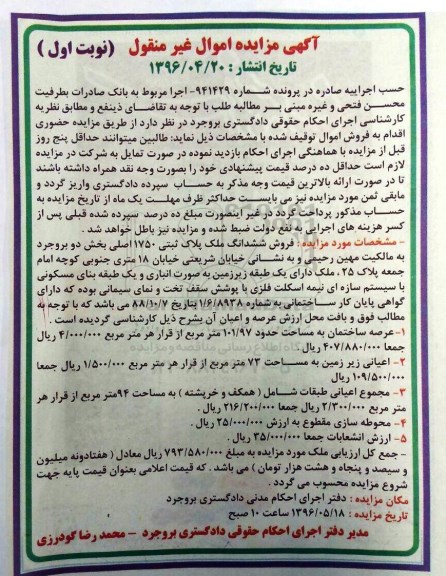 آگهی مزایده اموال غیر منقول (نوبت اول)
تاریخ انتشار : ۱۳۹۶/۰۴/۲۰
حسب اجراییه صادره در پرونده شماره ۹۴۱۴۲۹- اجرا مربوط به بانک صادرات بطرفیت
محسن فتحی و غیره مبنی بر مطالبه طلب با توجه به تقاضای ذینفع و مطابق نظریه
کارشناسی اجرای احکام حقوقی دادگستری بروجرد در نظر دارد از طریق مزایده حضوری
اقدام به فروش اموال توقیف شده با مشخصات ذیل نماید: طالبین میتوانند حداقل پنج روز
قبل از مزایده با هماهنگی اجرای احکام بازدید نموده در صورت تمایل به شرکت در مزایده
لازم است حداقل ده درصد قیمت پیشنهادی خود را بصورت وجه نقد همراه داشته باشند
تا در صورت ارائه بالاترین قیمت وجه مذکر به حساب سپرده دادگستری واریز گردد و
مابقی ثمن مورد مزایده نیز می بایست حداکثر ظرف مهلت یک ماه از تاریخ مزایده به
حساب مذکور پرداخت گردد در غیر اینصورت مبلغ ده درصد سپرده شده قبلی پس از
کسر هزینه های اجرایی به نفع دولت ضبط شده و مزایده نیز باطل خواهد شد .
- مشخصات مورد مزایده : فروش ششدانگ ملک پلاک ثبتی ۱۷۵۰ اصلی بخش دو بروجرد
به مالکیت مهین رحیمی و به نشانی خیابان شریعتی خیابان ۱۸ متری جنوبی کوچه امام
جمعه پلاک ۲۵ ، ملک دارای یک طبقه زیرزمین به صورت انباری و یک طبقه بنای مسکونی
با سیستم سازه ای نیمه اسکلت فلزی با پوشش سقف تخت و نمای سیمانی بوده که دارای
گواهی پایان کار ساختمانی به شماره ۱/۶/۸۹۳۸ بتاریخ ۸۸/۱۰/۷ می باشد که با توجه به
مطالب فوق و بافت محل ارزش عرصه و اعیان آن بشرح ذیل کارشناسی گردیده است .
۱-عرصه ساختمان به مساحت حدود ۱۰۱/۹۷متر مربع از قرار هر متر مربع ۴/۰۰۰/۰۰۰ ریال
جمعا ۴۰۷/۸۸۰/۰۰۰ ریال .
۲- اعیانی زیر زمین به مساحت ۷۳ متر مربع از قرار هر متر مربع ۱/۵۰۰/۰۰۰ ریال جمعا
۱۰۹/۵۰۰/۰۰۰ ریال
۳- مجموع اعیانی طبقات شامل ( همکف و خرپشته ) به مساحت ۹۴متر مربع از قرار هر
متر مربع ۲/۳۰۰/۰۰۰ ریال جمعا ۲۱۶/۲۰۰/۰۰۰ ریال .
۴- محوطه سازی مقطوع به ارزش ۲۵/۰۰۰/۰۰۰ ریال .
۵- ارزش انشعابات جمعا ۳۵/۰۰۰/۰۰۰ ریال .
- جمع کل ارزیابی ملک مورد مزایده به مبلغ ۷۹۳/۵۸۰/۰۰۰ ریال معادل ( هفتادونه میلیون
و سیصد و پنجاه و هشت هزار تومان ) می باشد . که قیمت اعلامی بعنوان قیمت پایه جهت
شروع مزایده محسوب می گردد .
مکان مزایده : دفتر اجرای احکام مدنی دادگستری بروجرد
تاریخ مزایده : ۱۳۹۶/۰۵/۱۸ ساعت ۱۰ صبح
مدیر دفتر اجرای احکام حقوقی دادگستری بروجرد - محمد رضا گودرزی